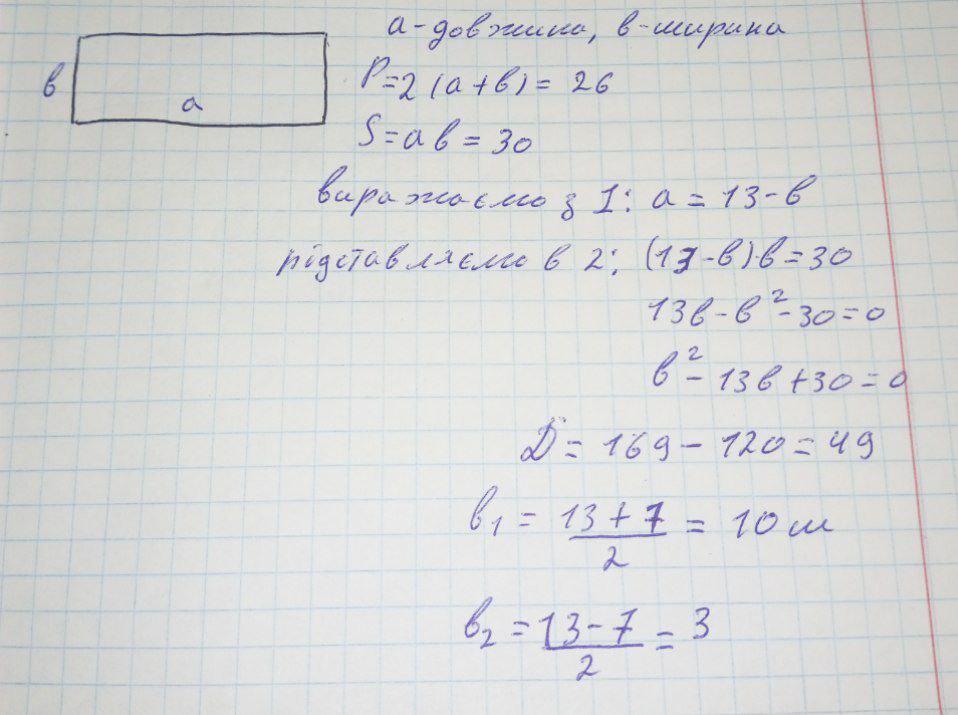 а-довжина, в-ширина
в
а
P=2(а+в)=26
S=ав=30
виражаємо з 1: а=13-в
підставляємо в 2: (13-в)·в=30
13в-в²-30=0
в²-13в+30=0
D=169-120=49
в₁=(13+7)/2=10м
в₂=(13-7)/2=3